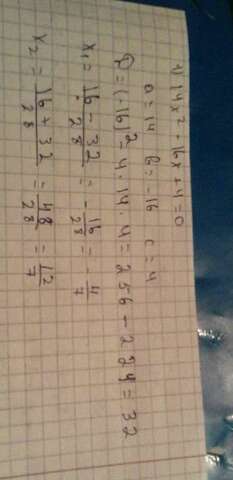 1) 14x² - 16x + 4 = 0
a = 14 b = -16 c = 4
D = (-16)² - 4 · 14 · 4 = 256 - 224 = 32
x₁ = \frac{16 - 32}{28} = -\frac{16}{28} = -\frac{4}{7}
x₂ = \frac{16 + 32}{28} = \frac{48}{28} = \frac{12}{7}